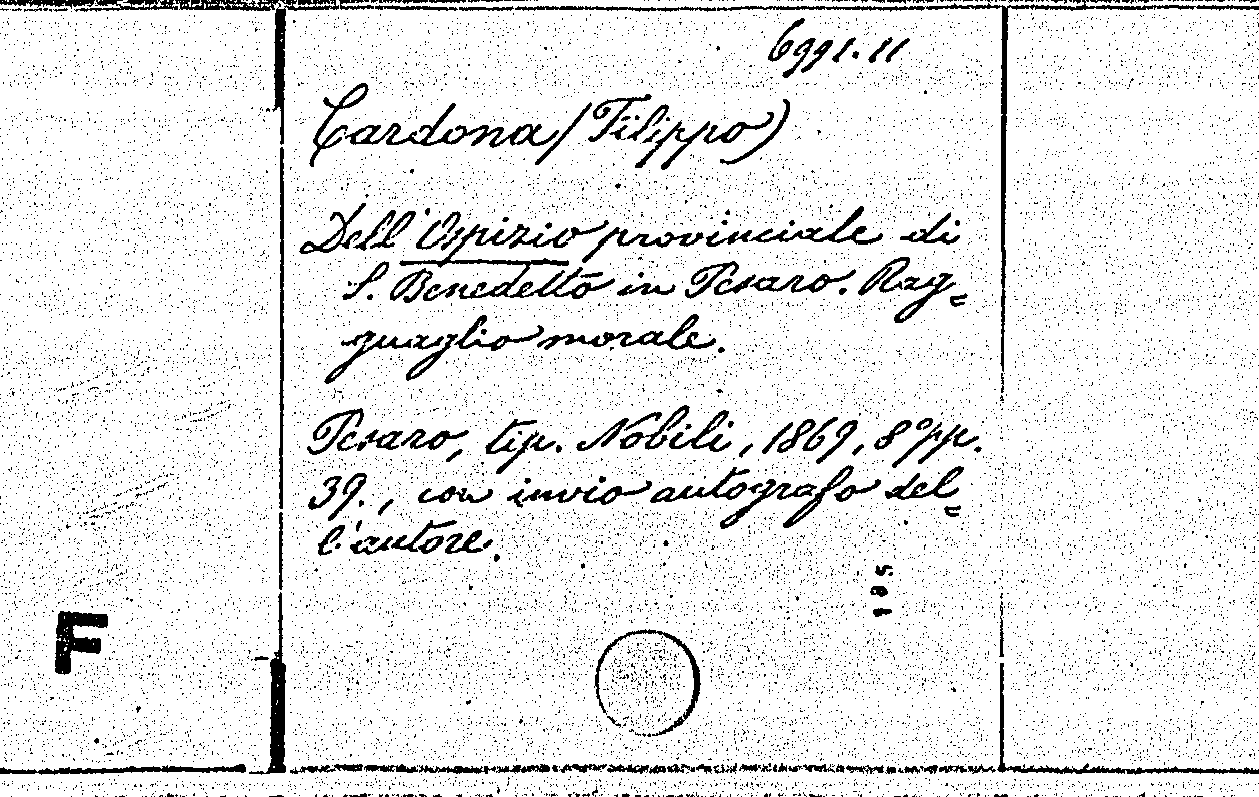 6991.11
Cardona (Filippo)
Dell'Ospizio provinciale di
S. Benedetto in Pesaro. Rag=
guaglio morale.
Pesaro, tip. Nobili, 1869, 8° pp.
39., con invio autografo del=
l'autore.
F